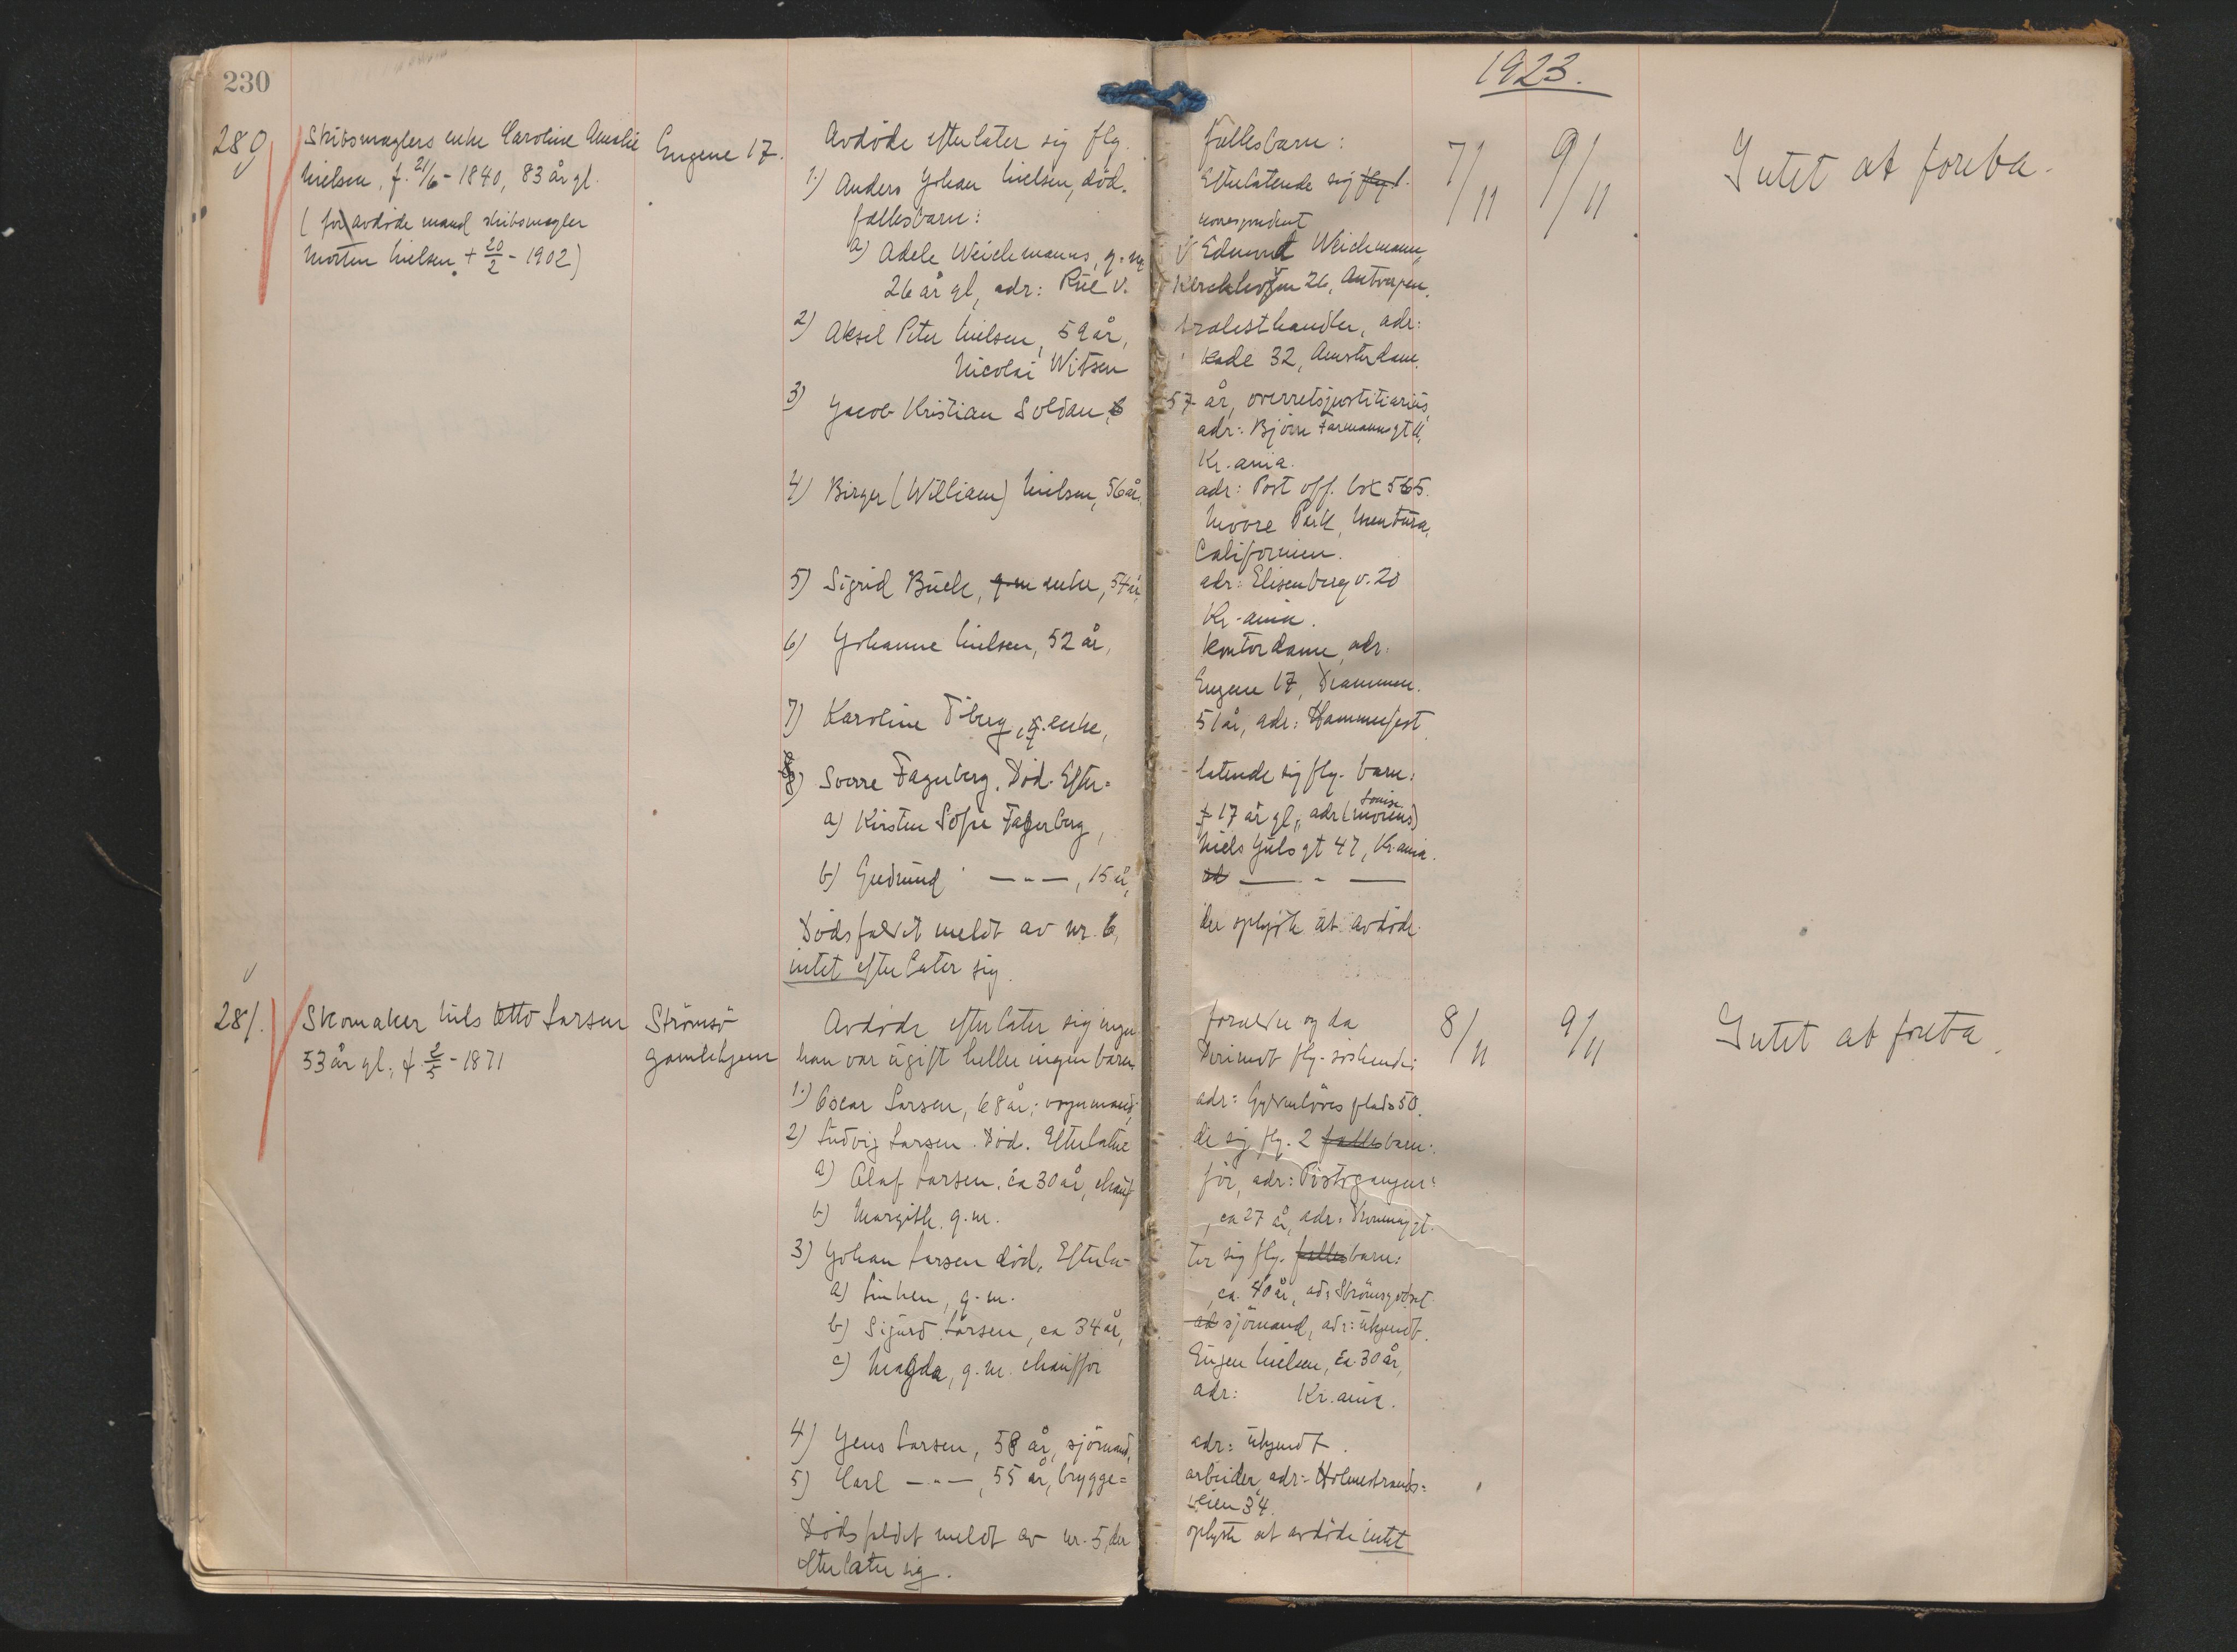 230
1923.
280 Skibsmæglers enke Caroline Amalie Eugene 17. Avdöde efterlater sig flg. fællesbarn: 7/11 9/11 Intet at foreta.
Nielsen, f. 21/6 - 1840, 83 år gl. 1) Anders Johan Nielsen, död. Efterlatende sig flg. 1.
( for avdöde mand skibsmægler fællesbarn: korrespondent
Morten Nielsen + 20/2 - 1902) a) Adele Weichmanns, g.m. Edmund Weichmann,
26 år gl, adr: Rue v. Kerckhoven 26, Antverpen.
2) Aksel Peter Nielsen, 59 år, trælasthandler, adr:
Nicolai Witsen Kade 32, Amsterdam.
3) Jacob Kristian Soldan, 57 år, overretsjustitiarius,
adr: Björn Farmannsgt 11,
Kr.ania.
4) Birger (William) Nielsen, 56 år, adr: Post off. box 565.
Moore Park, Ventura,
Californien.
5) Sigrid Buck, g.m enke, 54 år, adr: Elisenberg v. 20
Kr.ania.
6) Johanne Nielsen, 52 år, kontordame, adr.
Eugene 17, Drammen.
7) Karoline Öberg, g. enke, 51 år, adr: Hammerfest
8) Sverre Fagerberg. Död. Efter= latende sig flg. barn:
a) Kirsten Sofie Fagerberg, 17 år gl, adr (morens)
Niels Juels gt 47, Kr.ania.
b) Gudrund —"—, 15 år, ad — " —
Dödsfaldet meldt av nr. 6, der oplyste at avdöde
intet efterlater sig.
281. Skomaker Nils Otto Larsen Strömsö Avdöde efterlater sig ingen forældre og da 8/11 9/11 Intet at foreta.
53 år gl., f. 2/5 - 1871 gamlehjem han var ugift heller ingen barn. Derimot flg. söskende:
1) Oscar Larsen, 68 år, vognmand, adr: Gyldenlöves plads 50.
2) Ludvig Larsen. Död. Efterlatende sig flg. 2 fællesbarn:
a) Olaf Larsen, ca 30 år, chaufför, adr:
b) Margith, g.m. , ca 27 år, adr:
3) Johan Larsen död. Efterla- ter sig flg. fællesbarn:
a) , g.m. , ca. 40 år, adr: Strömsgodset
b) Sigurd Larsen, ca 34 år, ad sjömand, adr: ukjendt.
c) Magda, g.m. chaufför Eugen Nielsen, ca. 30 år,
adr: Kr.ania.
4) Jens Larsen, 58 år, sjömand, adr: ukjendt.
5) Carl —"—, 55 år, brygge= arbeider, adr: Holmestrands=
veien 34.
Dödsfaldet meldt av nr. 5, der oplyste at avdöde intet
efterlater sig.